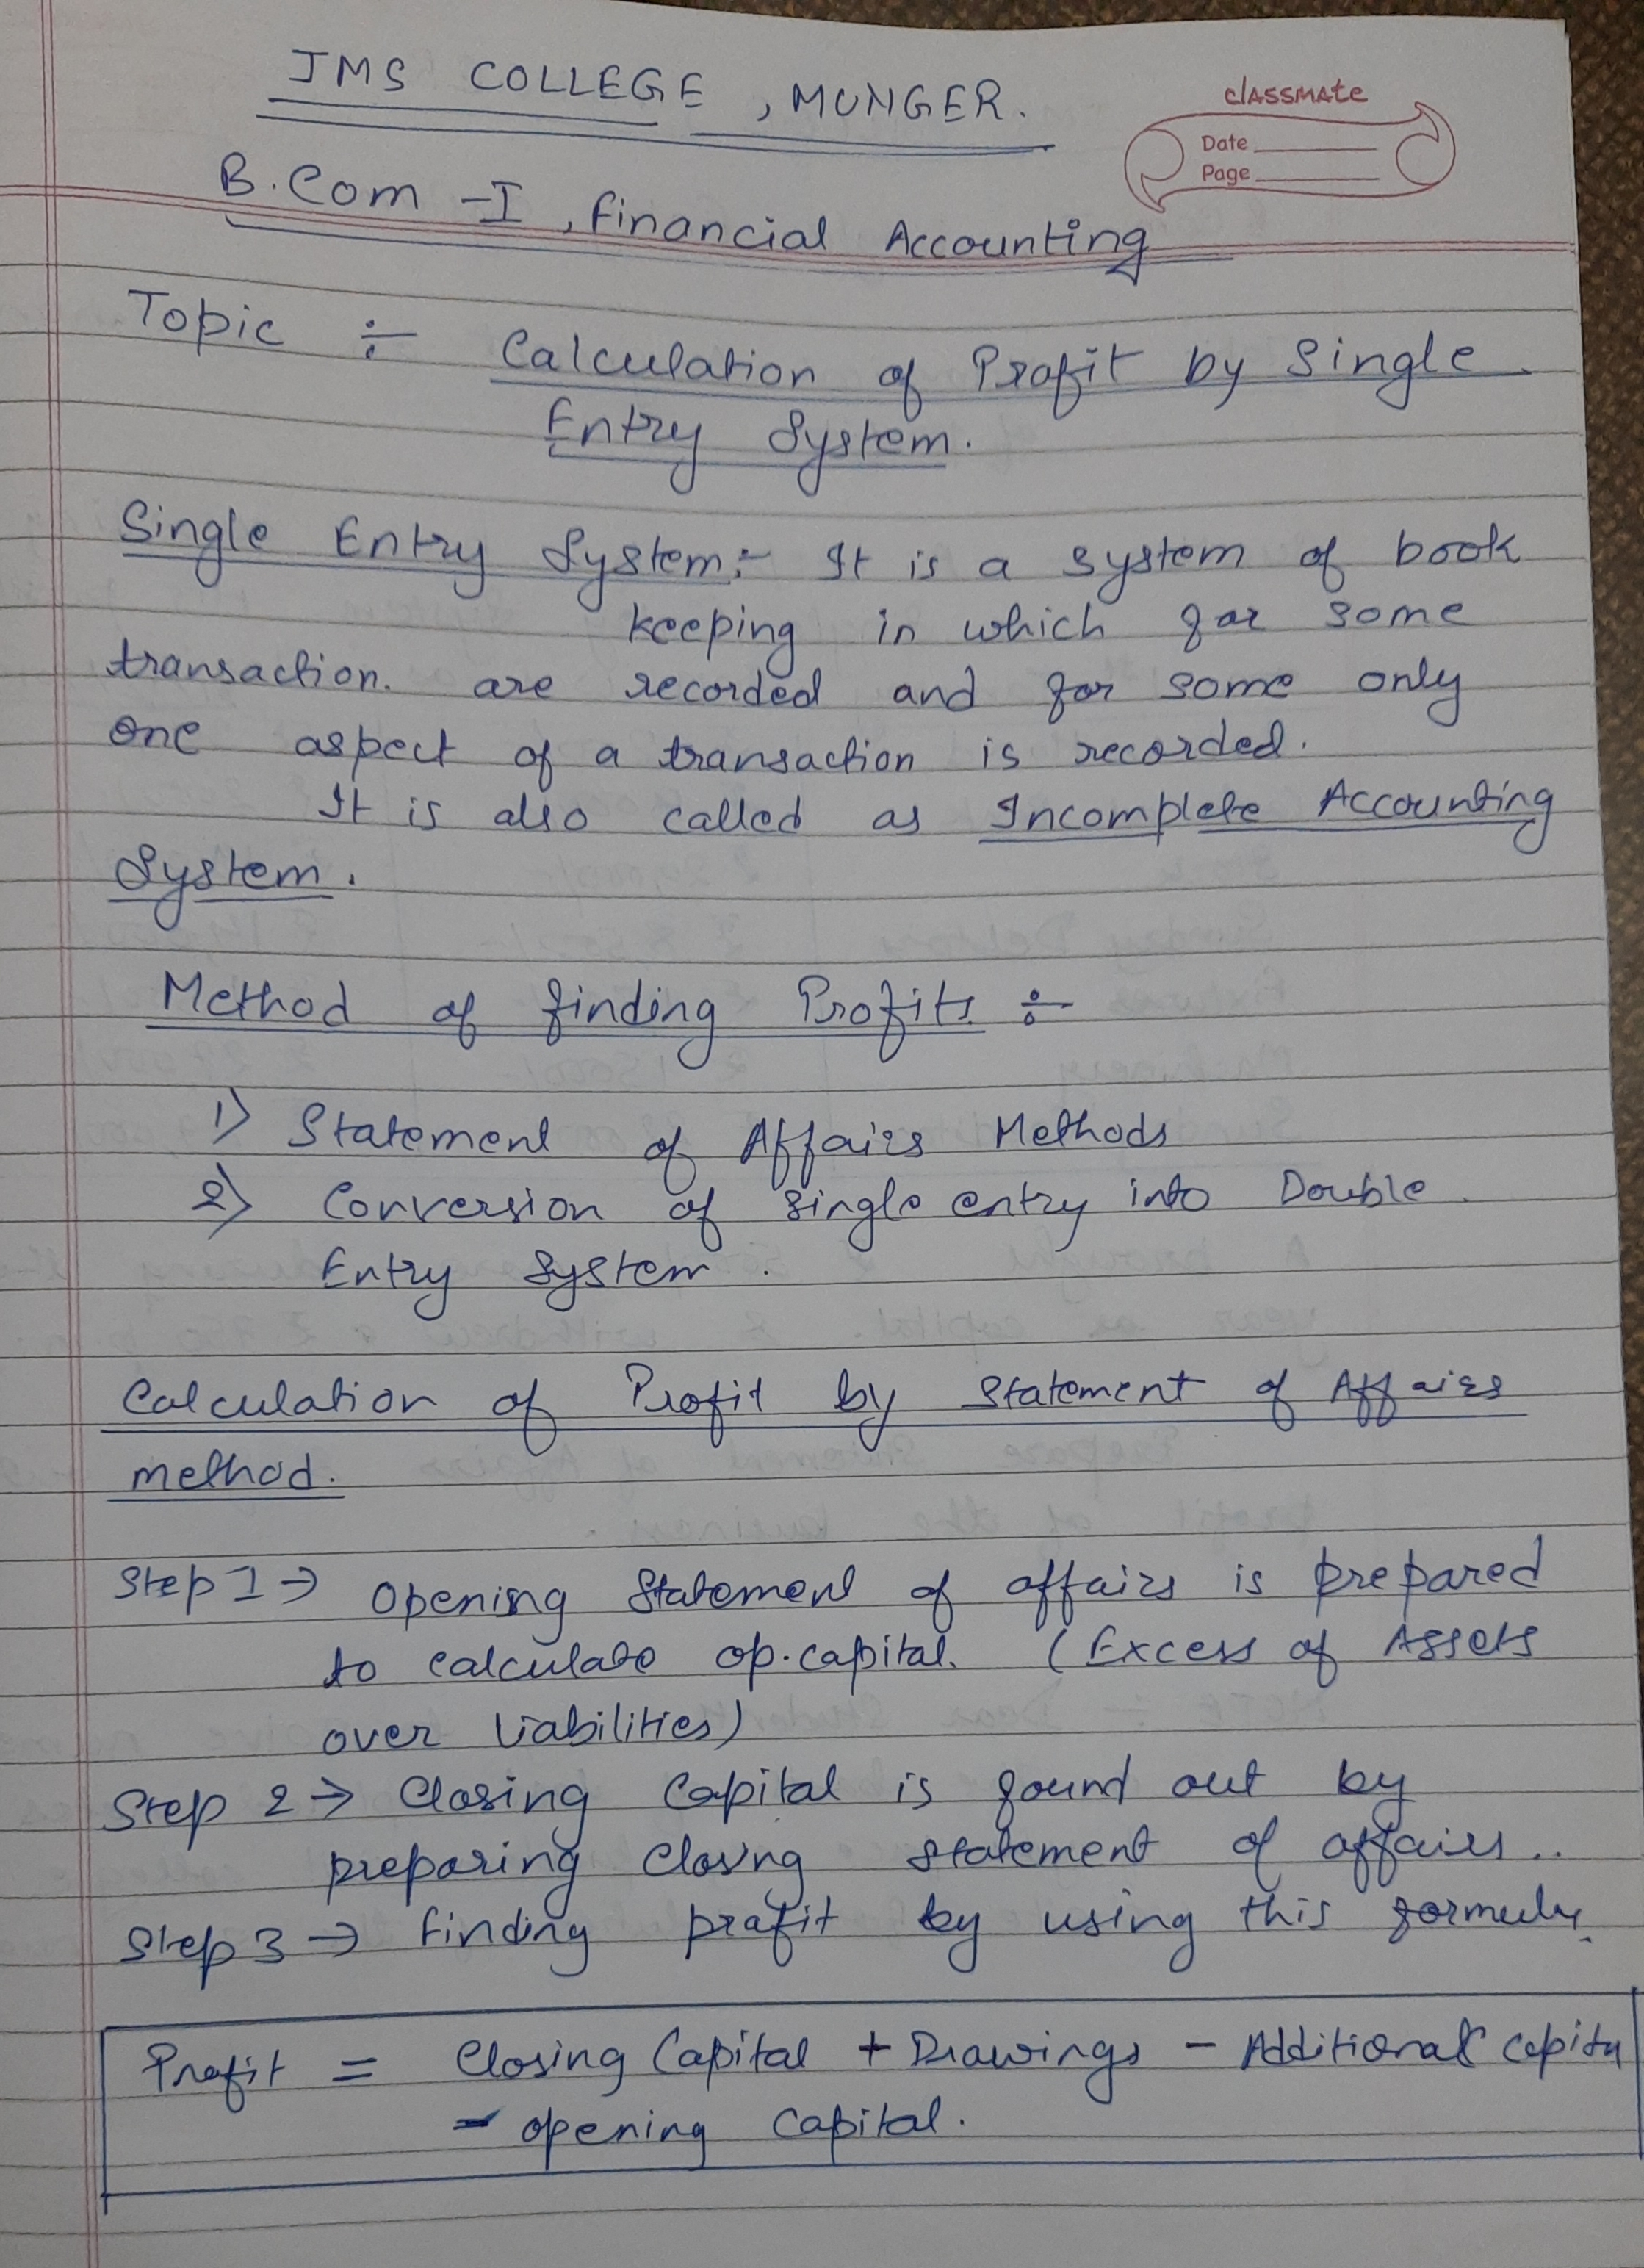 JMS COLLEGE, MUNGER.
classmate
Date
Page
B.Com - I, Financial Accounting
Topic ÷ Calculation of Profit by Single
Entry System.
Single Entry System:- It is a system of book
keeping in which for some
transaction. are recorded and for some only
one aspect of a transaction is recorded.
It is also called as Incomplete Accounting
System.
Method of finding Profits ÷
1) Statement of Affairs Methods
2) Conversion of single entry into Double
Entry System.
Calculation of Profit by Statement of Affairs
method.
Step 1 → Opening Statement of affairs is prepared
to calculate op. capital. (Excess of Assets
over Liabilities)
Step 2 → Closing Capital is found out by
preparing closing statement of affairs..
Step 3 → Finding profit by using this formula.
Profit = Closing Capital + Drawings - Additional Capita
- opening Capital.